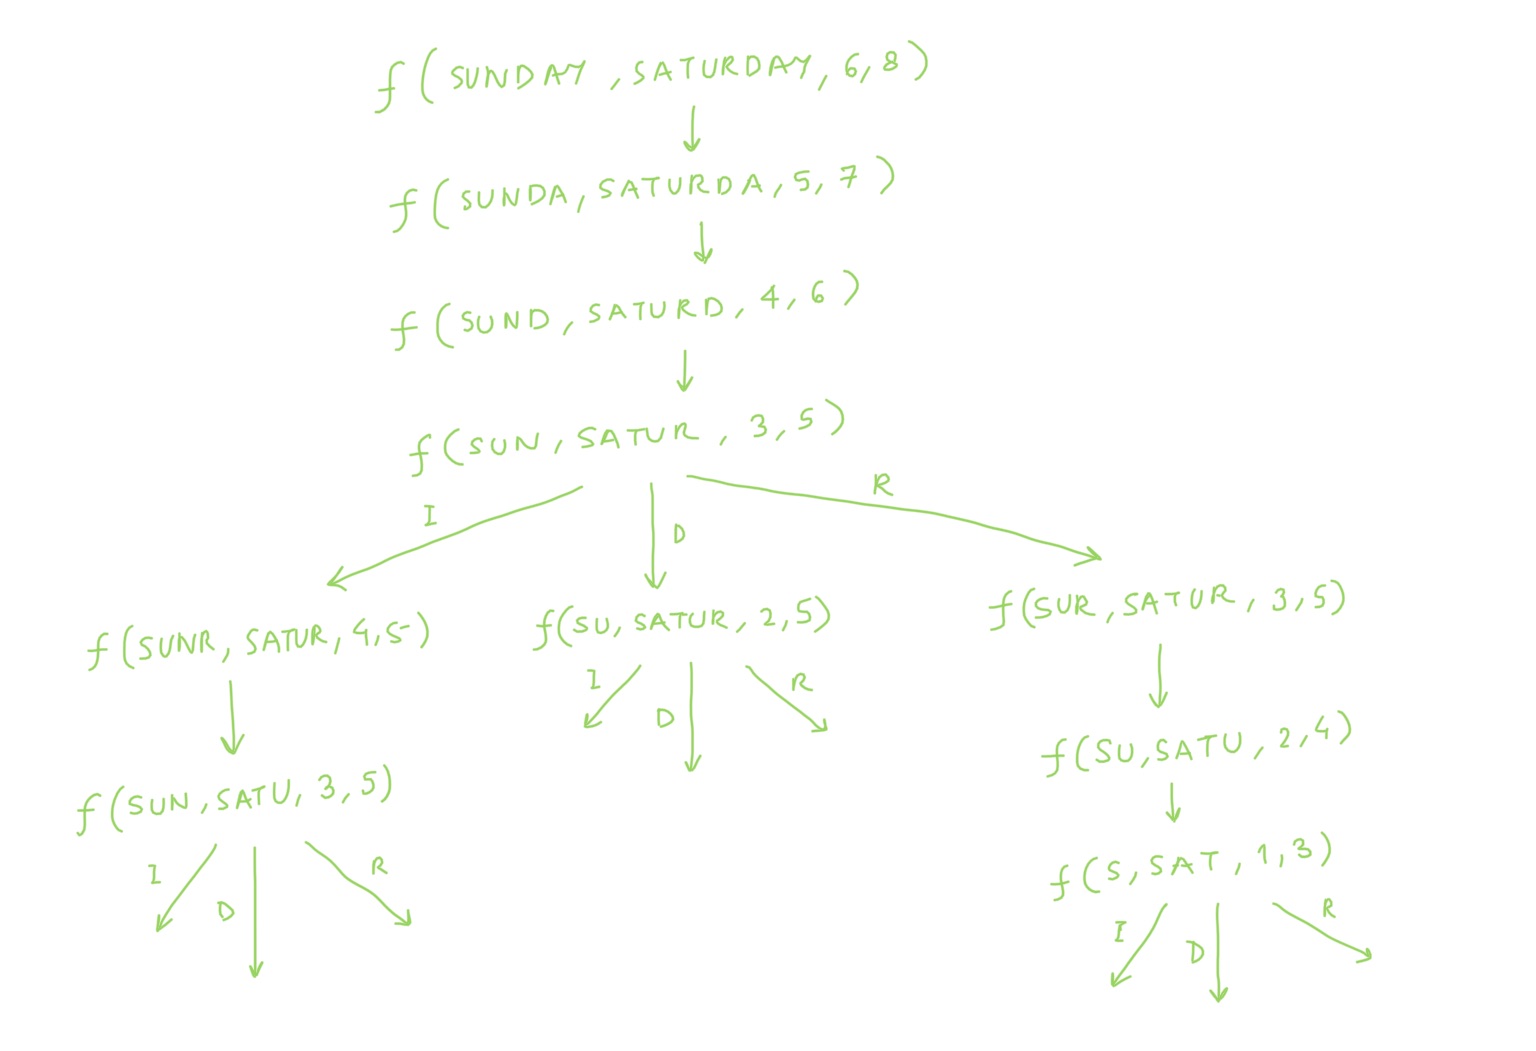 f(SUNDAY, SATURDAY, 6, 8)
f(SUNDA, SATURDA, 5, 7)
f(SUND, SATURD, 4, 6)
f(SUN, SATUR, 3, 5)
I D R
f(SUNR, SATUR, 4, 5)
f(SU, SATUR, 2, 5)
f(SUR, SATUR, 3, 5)
I D R
f(SUN, SATU, 3, 5)
f(SU, SATU, 2, 4)
I D R
f(S, SAT, 1, 3)
I D R